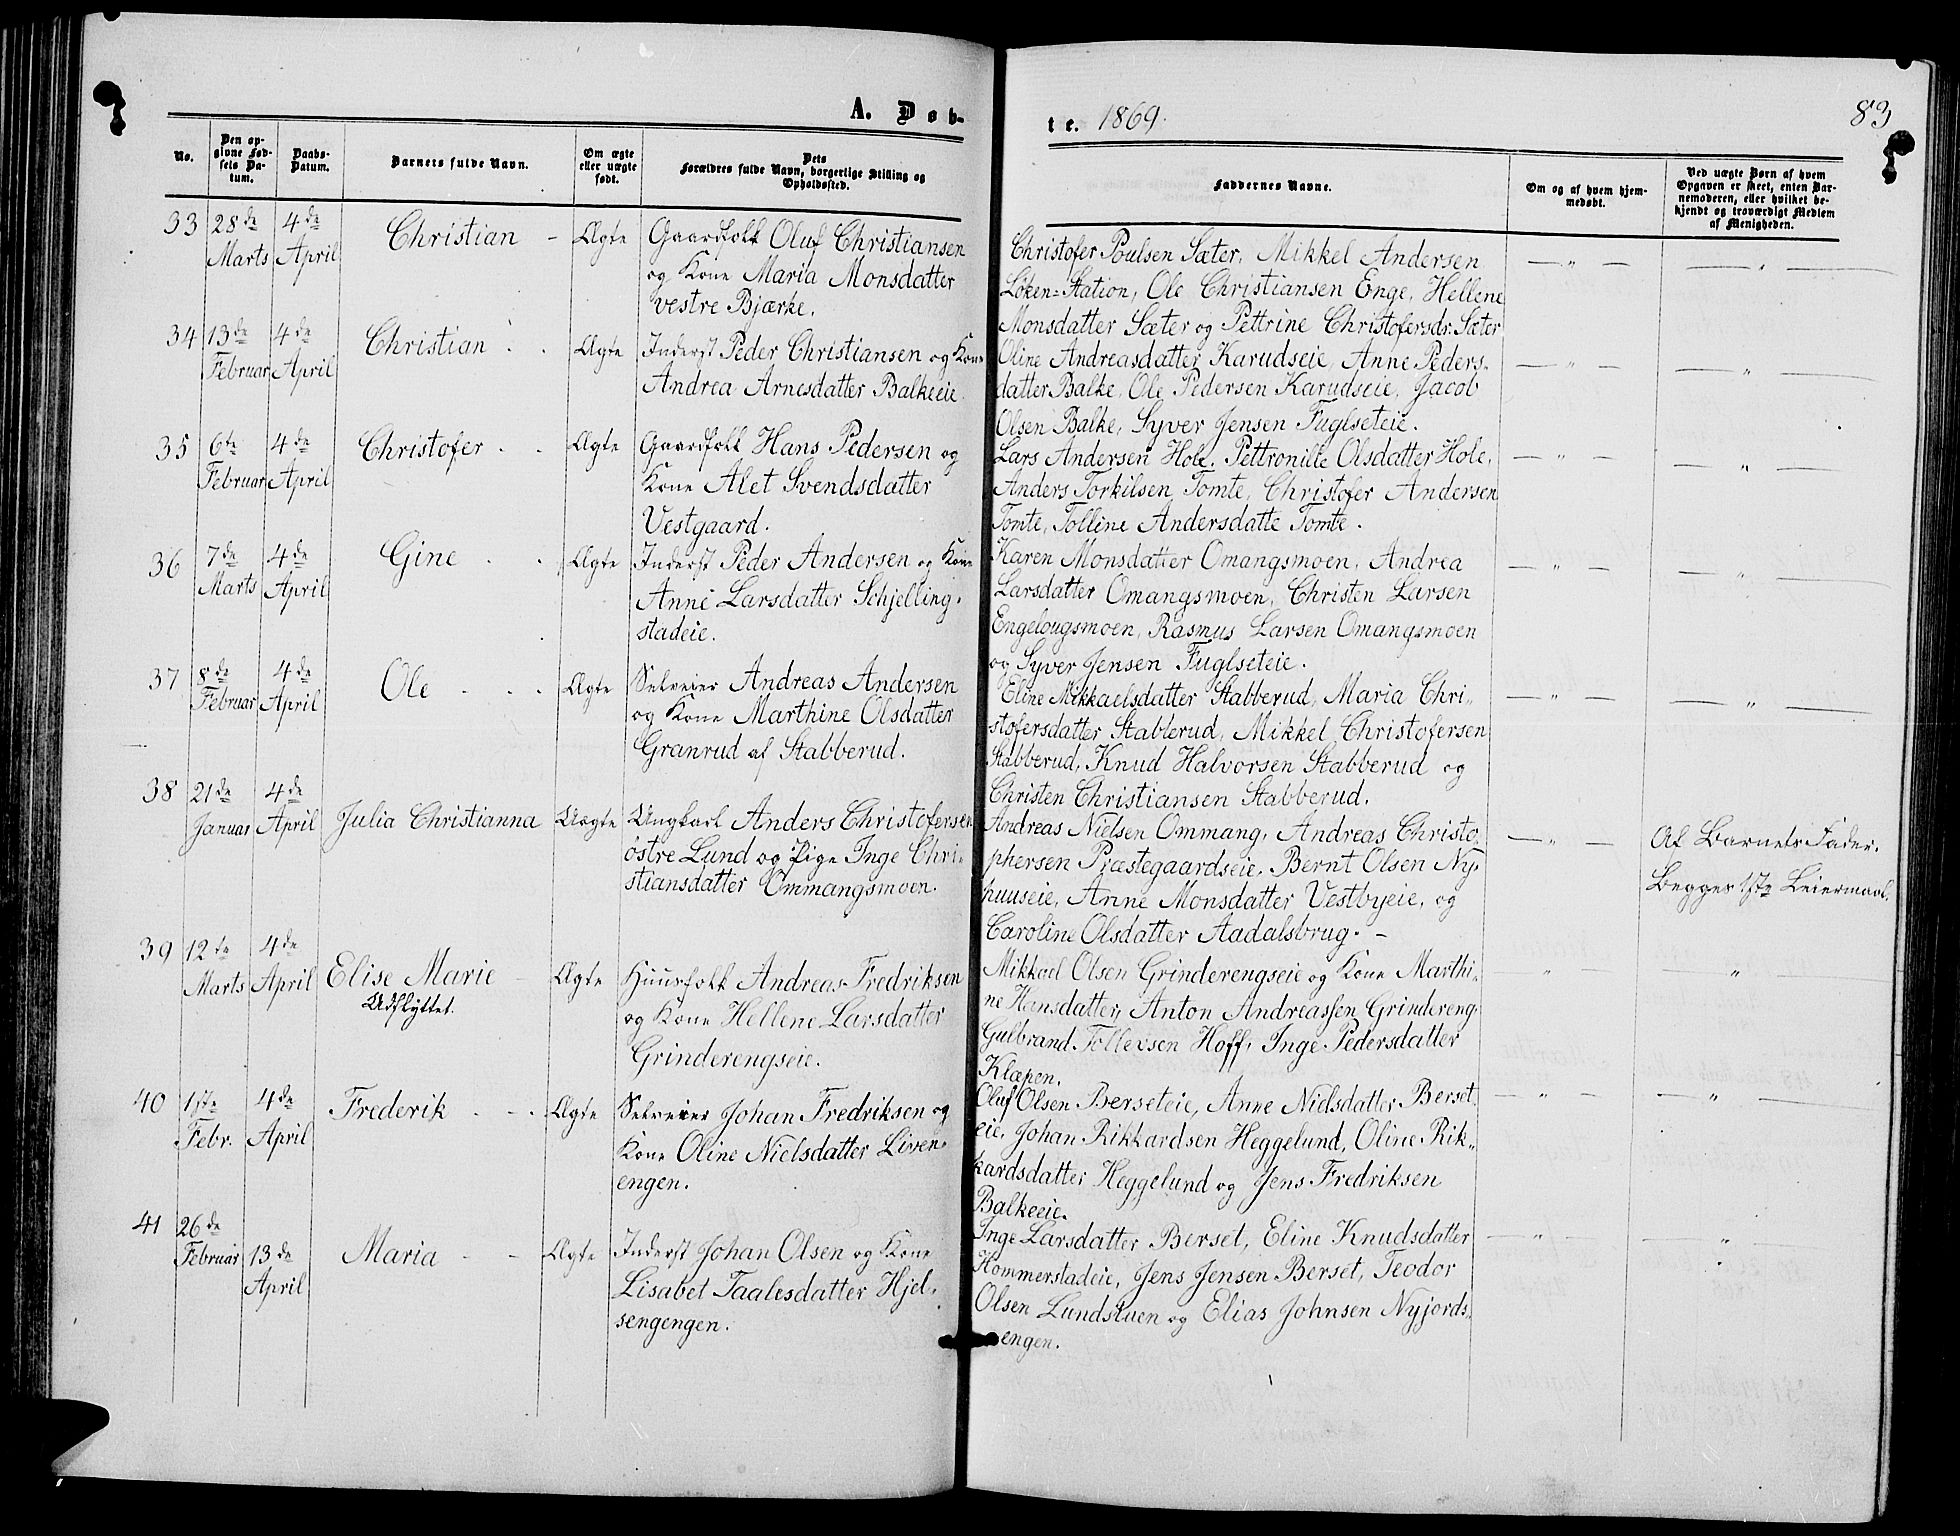 A. Døb-
te. 1869.
83
No.
Den op-
givne Fød-
sels Da-
tum.
Daabs-
Datum.
Barnets fulde Navn.
Om ægte
eller uægte
født.
Dets
Forældres fulde Navn, borgerlige Stilling og
Opholdssted.
Faddernes Navne.
Om og af hvem hjem-
medøbt.
Ved uægte Børn af hvem
Opgaven er skeet, enten Bar-
nemoderen, eller hvilket be-
kjendt og troværdigt Medlem
af Menigheden.
33 28de Marts 4de April Christian - Ægte
Gaardfolk Oluf Christiansen
og Kone Maria Monsdatter
vestre Bjærke.
Christofer Poulsen Sæter, Mikkel Andersen
Løken-Station, Ole Christiansen Enge, Hellene
Monsdatter Sæter og Pettrine Christofersdr. Sæter
— " — — " —
34 13de Februar 4de April Christian . . Ægte
Inderst Peder Christiansen og Kone
Andrea Arnesdatter Balkeeie.
Oline Andreasdatter Karudseie, Anne Peders-
datter Balke, Ole Pedersen Karudseie, Jacob
Olsen Balke, Syver Jensen Fuglseteie.
— " — — " —
35 6te Februar 4de April Christofer . . Ægte
Gaardfolk Hans Pedersen og
Kone Alet Svendsdatter
Vestgaard.
Lars Andersen Hole, Pettronille Olsdatter Hole,
Anders Torkilsen Tomte, Christofer Andersen
Tomte, Tolline Andersdatte Tomte.
— " — — " —
36 7de Marts 4de April Gine . . Ægte
Inderst Peder Andersen og Kone
Anne Larsdatter Schjelling-
stadeie.
Karen Monsdatter Omangsmoen, Andrea
Larsdatter Omangsmoen, Christen Larsen
Engelougsmoen, Rasmus Larsen Omangsmoen
og Syver Jensen Fuglseteie.
— " — — " —
37 8de Februar 4de April Ole . . . Ægte
Selveier Andreas Andersen
og Kone Marthine Olsdatter
Granrud af Stabberud.
Eline Mikkaelsdatter Stabberud, Maria Chri-
stofersdatter Stabberud, Mikkel Christofersen
Stabberud, Knud Halvorsen Stabberud og
Christen Christiansen Stabberud.
— " — — " —
38 21de Januar 4de April Julia Christianna Uægte
Ungkarl Anders Christofersen
østre Lund og Pige Inge Chri-
stiansdatter Ommangsmoen.
Andreas Nielsen Ommang, Andreas Christo-
phersen Præstegaardseie, Bernt Olsen Ny-
huuseie, Anne Monsdatter Vestbyeie, og
Caroline Olsdatter Aadalsbrug. -
— " —
Af Barnets Fader.
Begges 1ste Leiermaal.
39 12te Marts 4de April Elise Marie - Ægte
Udflyttet.
Huusfolk Andreas Fredriksen
og Kone Hellene Larsdatter
Grinderengseie.
Mikkael Olsen Grinderengseie og Kone Marthi-
ne Hansdatter, Anton Andreassen Grindereng,
Gulbrand Tollevsen Hoff, Inge Pedersdatter
Klæpen.
— " — — " —
40 1ste Febr. 4de April Frederik . - . Ægte
Selveier Johan Fredriksen og
Kone Oline Nielsdatter Liven-
engen.
Oluf Olsen Berseteie, Anne Nielsdatter Berset-
eie, Johan Rikkardsen Heggelund, Oline Rik-
kardsdatter Heggelund og Jens Fredriksen
Balkeeie.
— " — — " —
41 26de Februar 13de April Maria - - Ægte
Inderst Johan Olsen og Kone
Lisabet Taalesdatter Hjel-
sengengen.
Inge Larsdatter Berset, Eline Knudsdatter
Hommerstadeie, Jens Jensen Berset, Teodor
Olsen Lundstuen og Elias Johnsen Nyjords-
engen.
— " — — " —